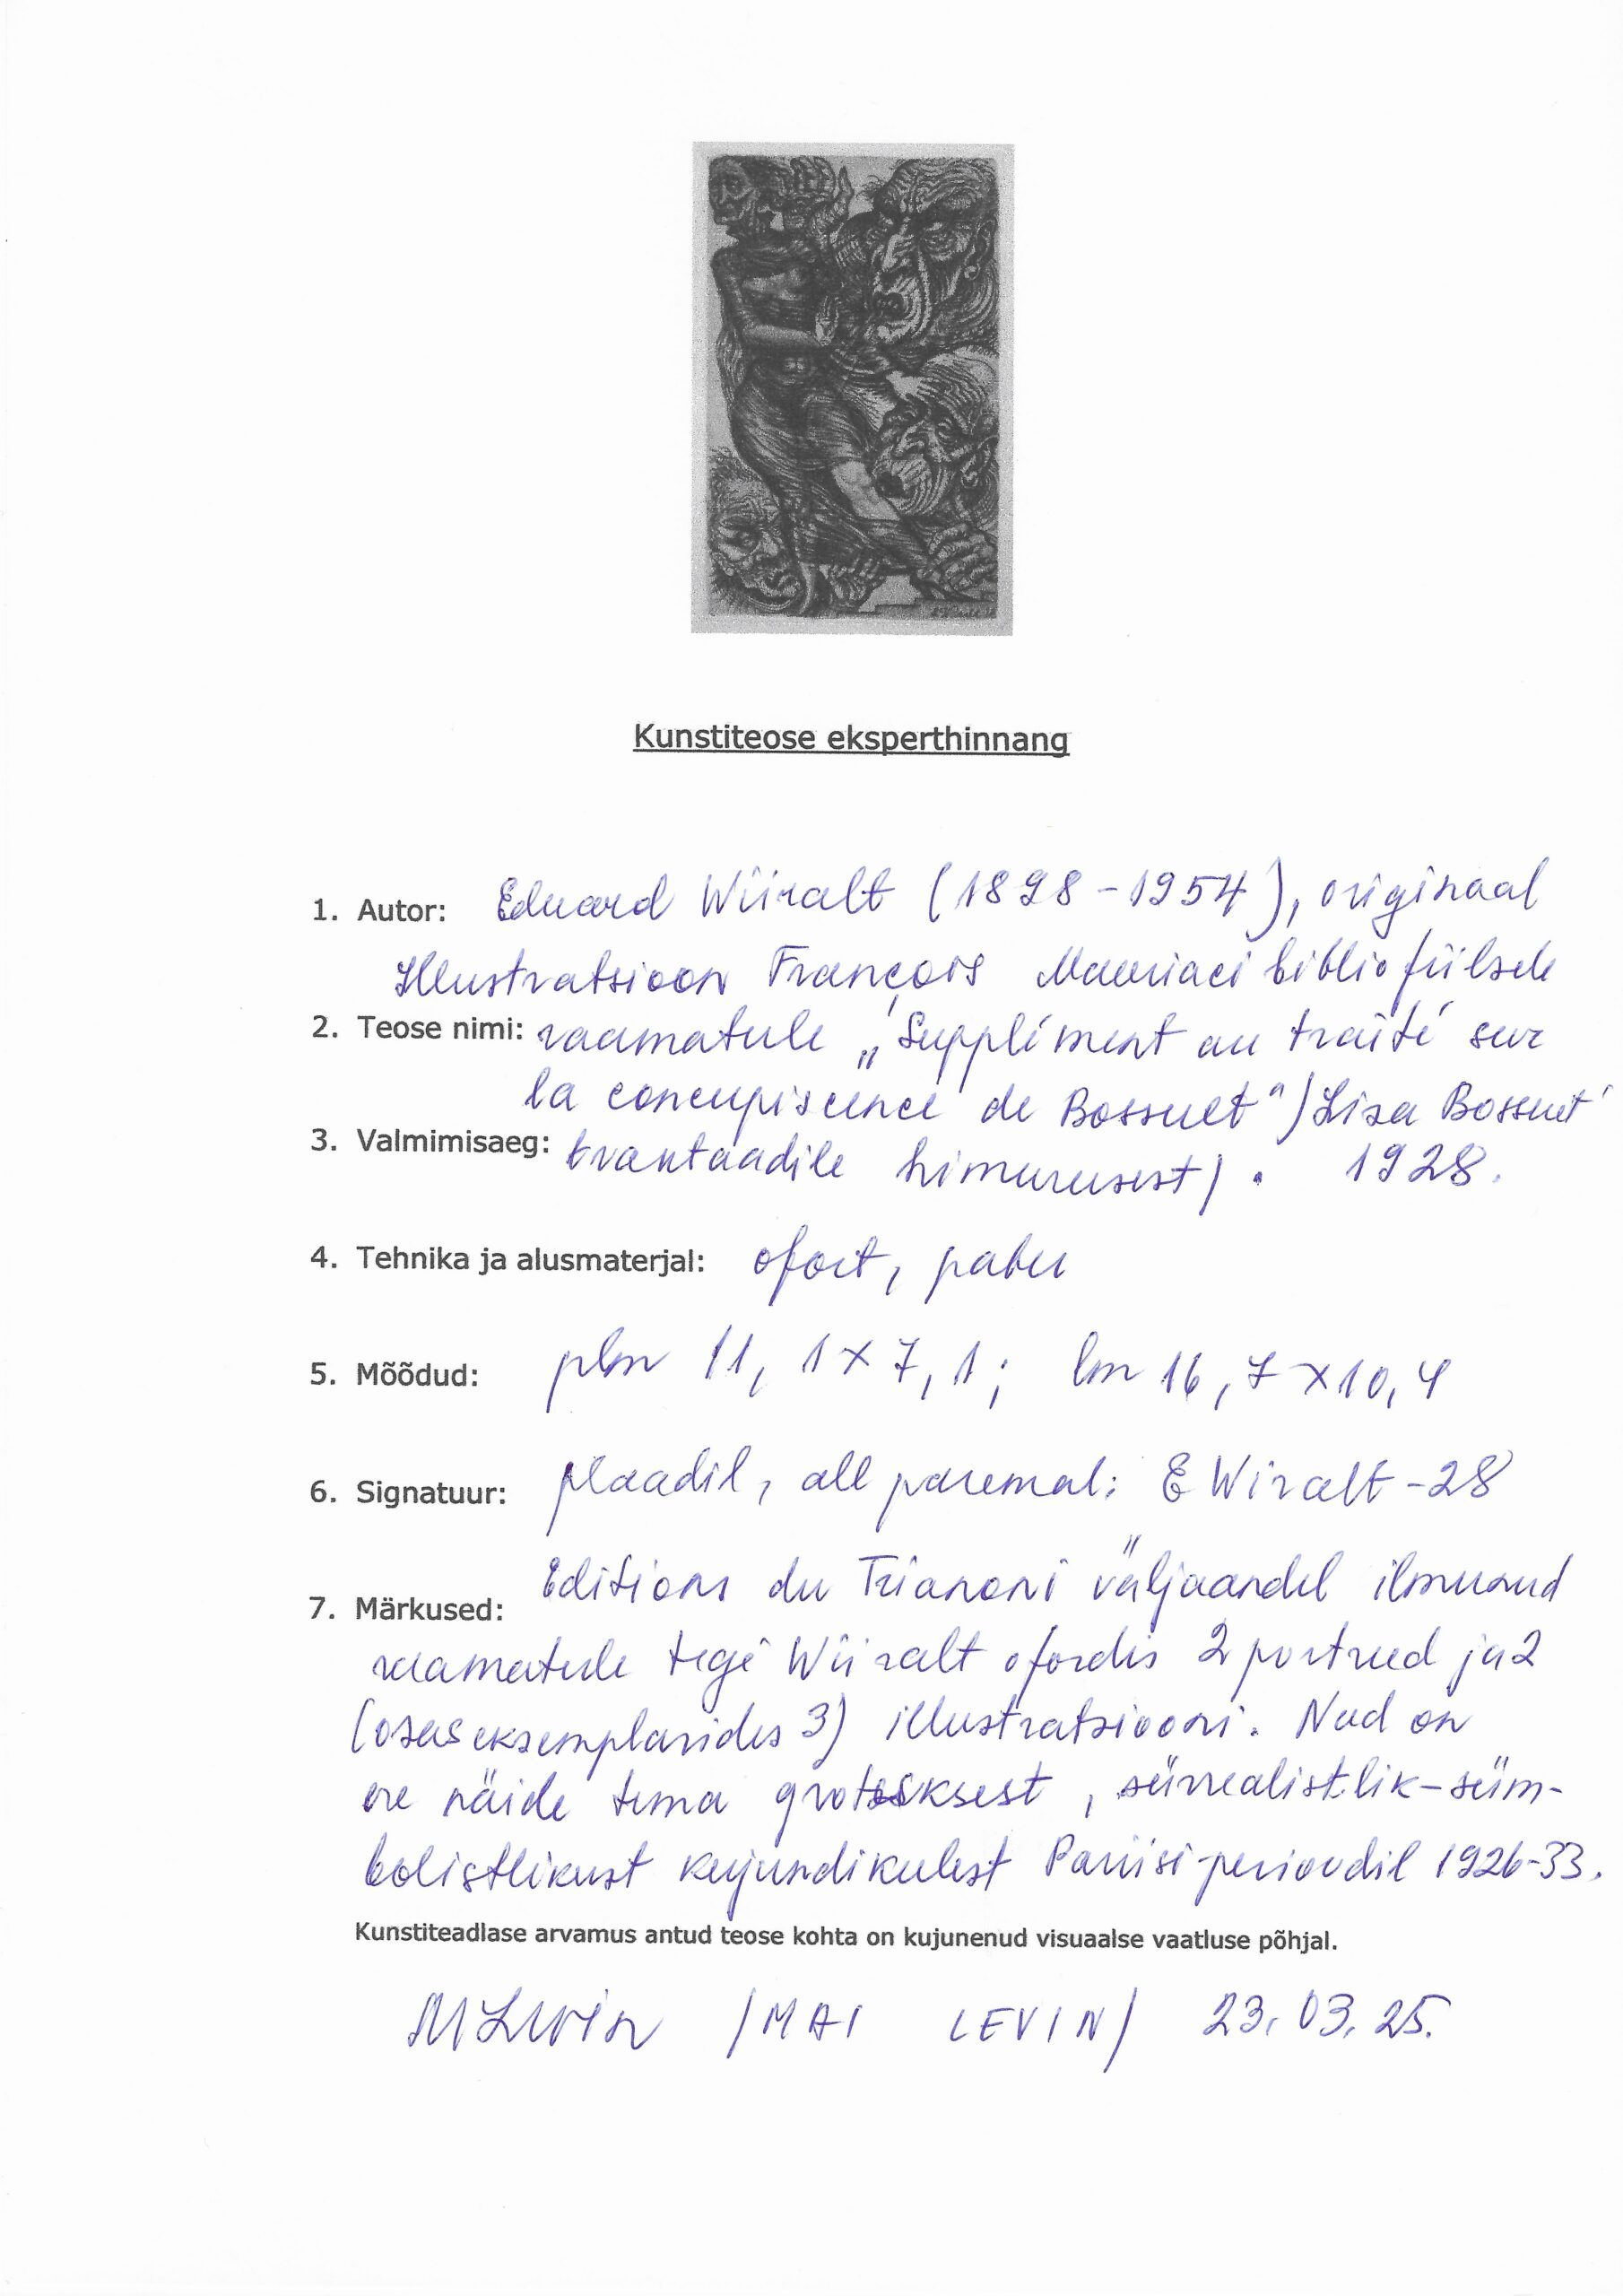 Kunstiteose eksperthinnang
1. Autor: Eduard Wiiralt (1898-1954), originaal
Illustratsioon François Mauriaci bibliofiilsele
2. Teose nimi: raamatule „Supplément au traité sur
la concupiscence de Bossuet"/Lisa Bossuet'
3. Valmimisaeg: traktaadile himurusest/. 1928.
4. Tehnika ja alusmaterjal: ofort, paber
5. Mõõdud: plm 11,1x7,1; lm 16,7x10,4
6. Signatuur: plaadil, all paremal: E Wiralt-28
Editions du Trianoni väljaandel ilmunud
7. Märkused:
raamatule tegi Wiiralt ofordis 2 portreed ja 2
(osas eksemplarides 3) illustratsiooni. Nad on
ere näide tema grotesksest, sürrealistlik-süm-
bolistlikust kujundikeelest Pariisi perioodil 1926-33.
Kunstiteadlase arvamus antud teose kohta on kujunenud visuaalse vaatluse põhjal.
MLevin /MAI LEVIN/ 23.03.25.